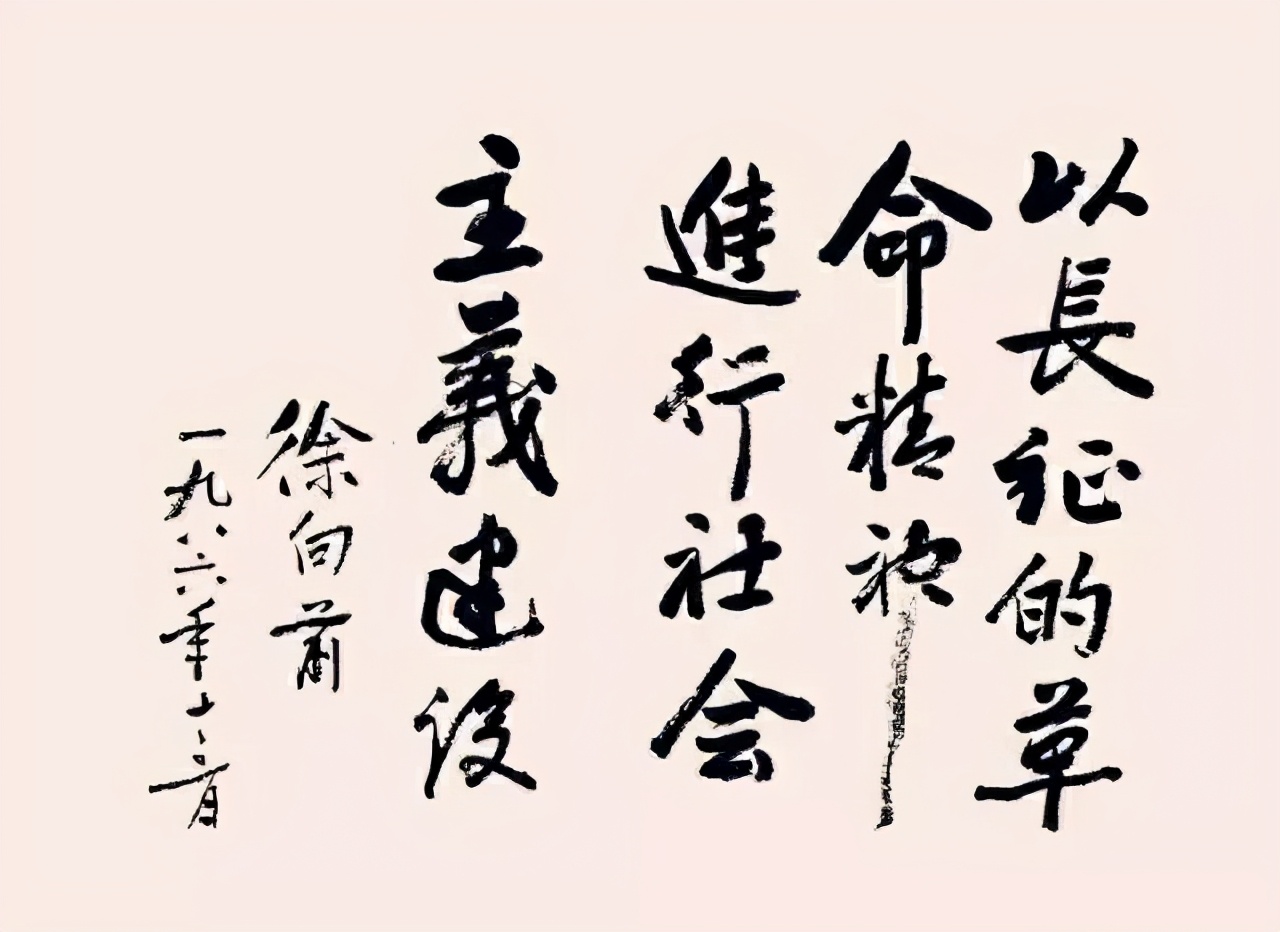 以長征的革
命精神
進行社会
主義建设
徐向前
一九八六年